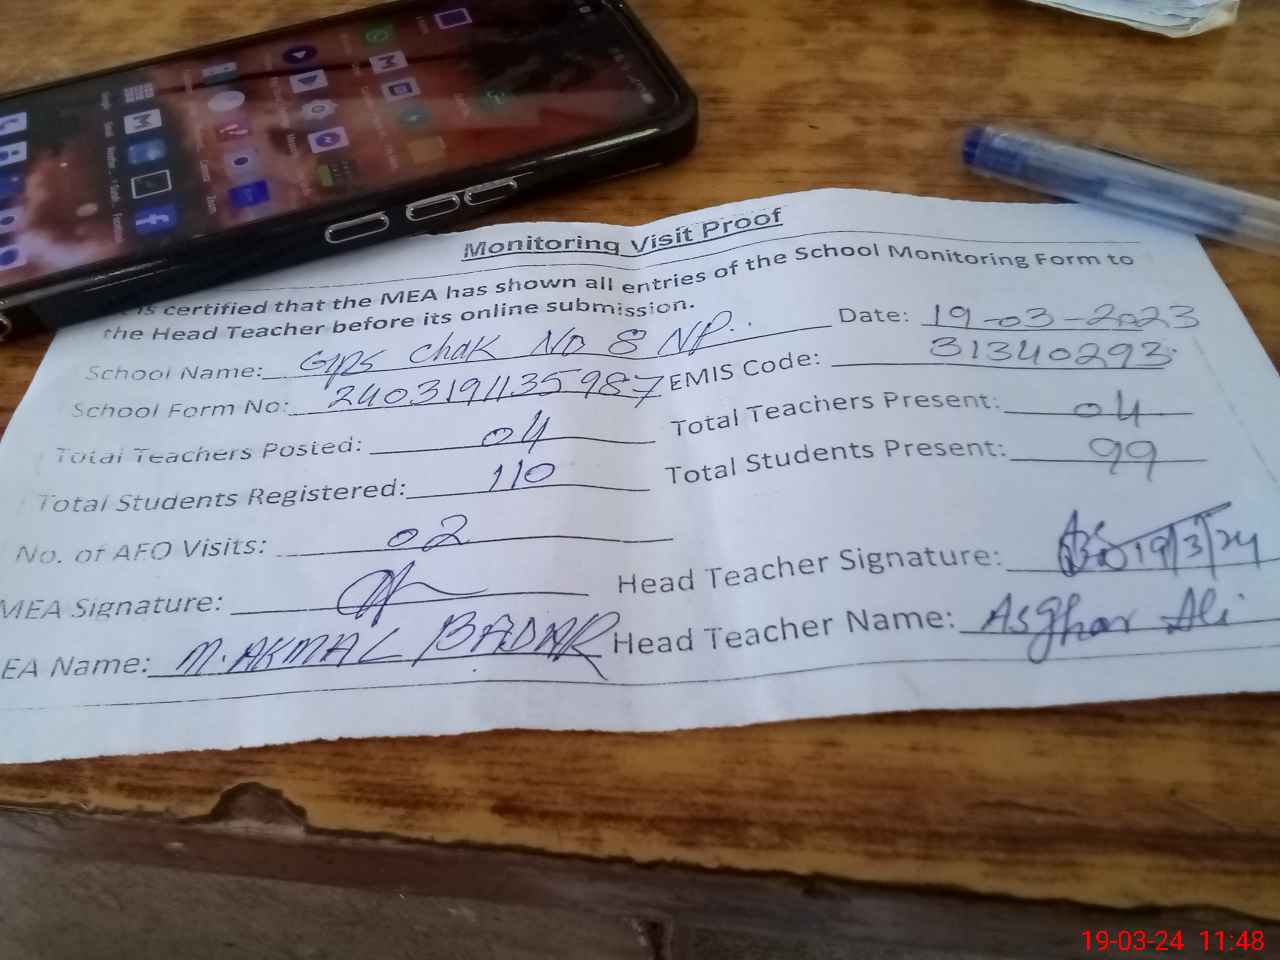 Monitoring Visit Proof
is certified that the MEA has shown all entries of the School Monitoring Form to
the Head Teacher before its online submission.
School Name: GPS Chak No 8 NP. Date: 19-03-2023
School Form No: 2403191135987 EMIS Code: 31340293
Total Teachers Posted: 04 Total Teachers Present: 04
Total Students Registered: 110 Total Students Present: 99
No. of AFO Visits: 02
MEA Signature: Head Teacher Signature: 19/3/24
EA Name: M. AKMAL BADAR Head Teacher Name: Asghar Ali
19-03-24 11:48